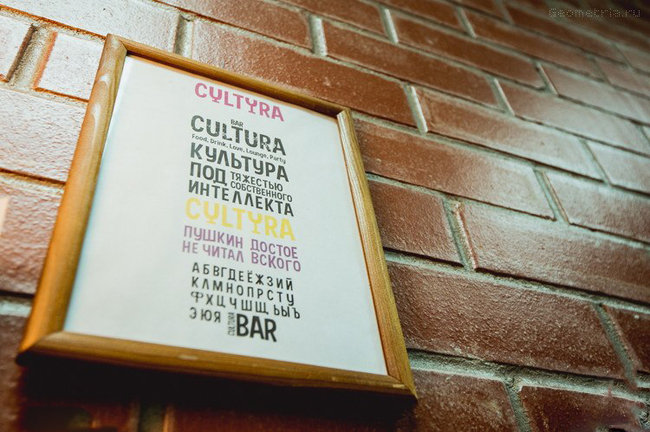 Geometria.ru
CULTURA
BAR
CULTURA
Food, Drink, Love, Lounge, Party
КУЛЬТУРА
ПОД ТЯЖЕСТЬЮ
СОБСТВЕННОГО
ИНТЕЛЛЕКТА
CULTURA
ПУШКИН ДОСТОЕ
НЕ ЧИТАЛ ВСКОГО
АБВГДЕЁЖЗИЙ
КЛМНОПРСТУ
ФХЦЧШЩЬЫЪ
ЭЮЯ CULTURA BAR